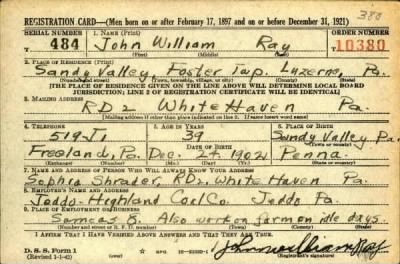 388
REGISTRATION CARD—(Men born on or after February 17, 1897 and on or before December 31, 1921)
SERIAL NUMBER 1. NAME (Print) ORDER NUMBER
T 484 John William Ray 10380
(First) (Middle) (Last)
2. PLACE OF RESIDENCE (Print)
Sandy Valley, Foster Twp. Luzerne, Pa.
(Number and street) (Town, township, village, or city) (County) (State)
[THE PLACE OF RESIDENCE GIVEN ON THE LINE ABOVE WILL DETERMINE LOCAL BOARD
JURISDICTION; LINE 2 OF REGISTRATION CERTIFICATE WILL BE IDENTICAL]
3. MAILING ADDRESS
RD 2 White Haven Pa.
[Mailing address if other than place indicated on line 2. If same insert word same]
4. TELEPHONE 5. AGE IN YEARS 6. PLACE OF BIRTH
519-J1 39 Sandy Valley Pa.
DATE OF BIRTH (Town or county)
Freeland, Pa. Dec. 24, 1902 Penna.
(Exchange) (Number) (Mo.) (Day) (Yr.) (State or country)
7. NAME AND ADDRESS OF PERSON WHO WILL ALWAYS KNOW YOUR ADDRESS
Sophia Shrader, RD2, White Haven Pa
8. EMPLOYER'S NAME AND ADDRESS
Jeddo-Highland Coal Co. Jeddo Pa
9. PLACE OF EMPLOYMENT OR BUSINESS
Same as 8. Also work on farm on idle days.
(Number and street or R. F. D. number) (Town) (County) (State)
I AFFIRM THAT I HAVE VERIFIED ABOVE ANSWERS AND THAT THEY ARE TRUE.
D. S. S. Form 1
(Revised 1-1-42) John William Ray